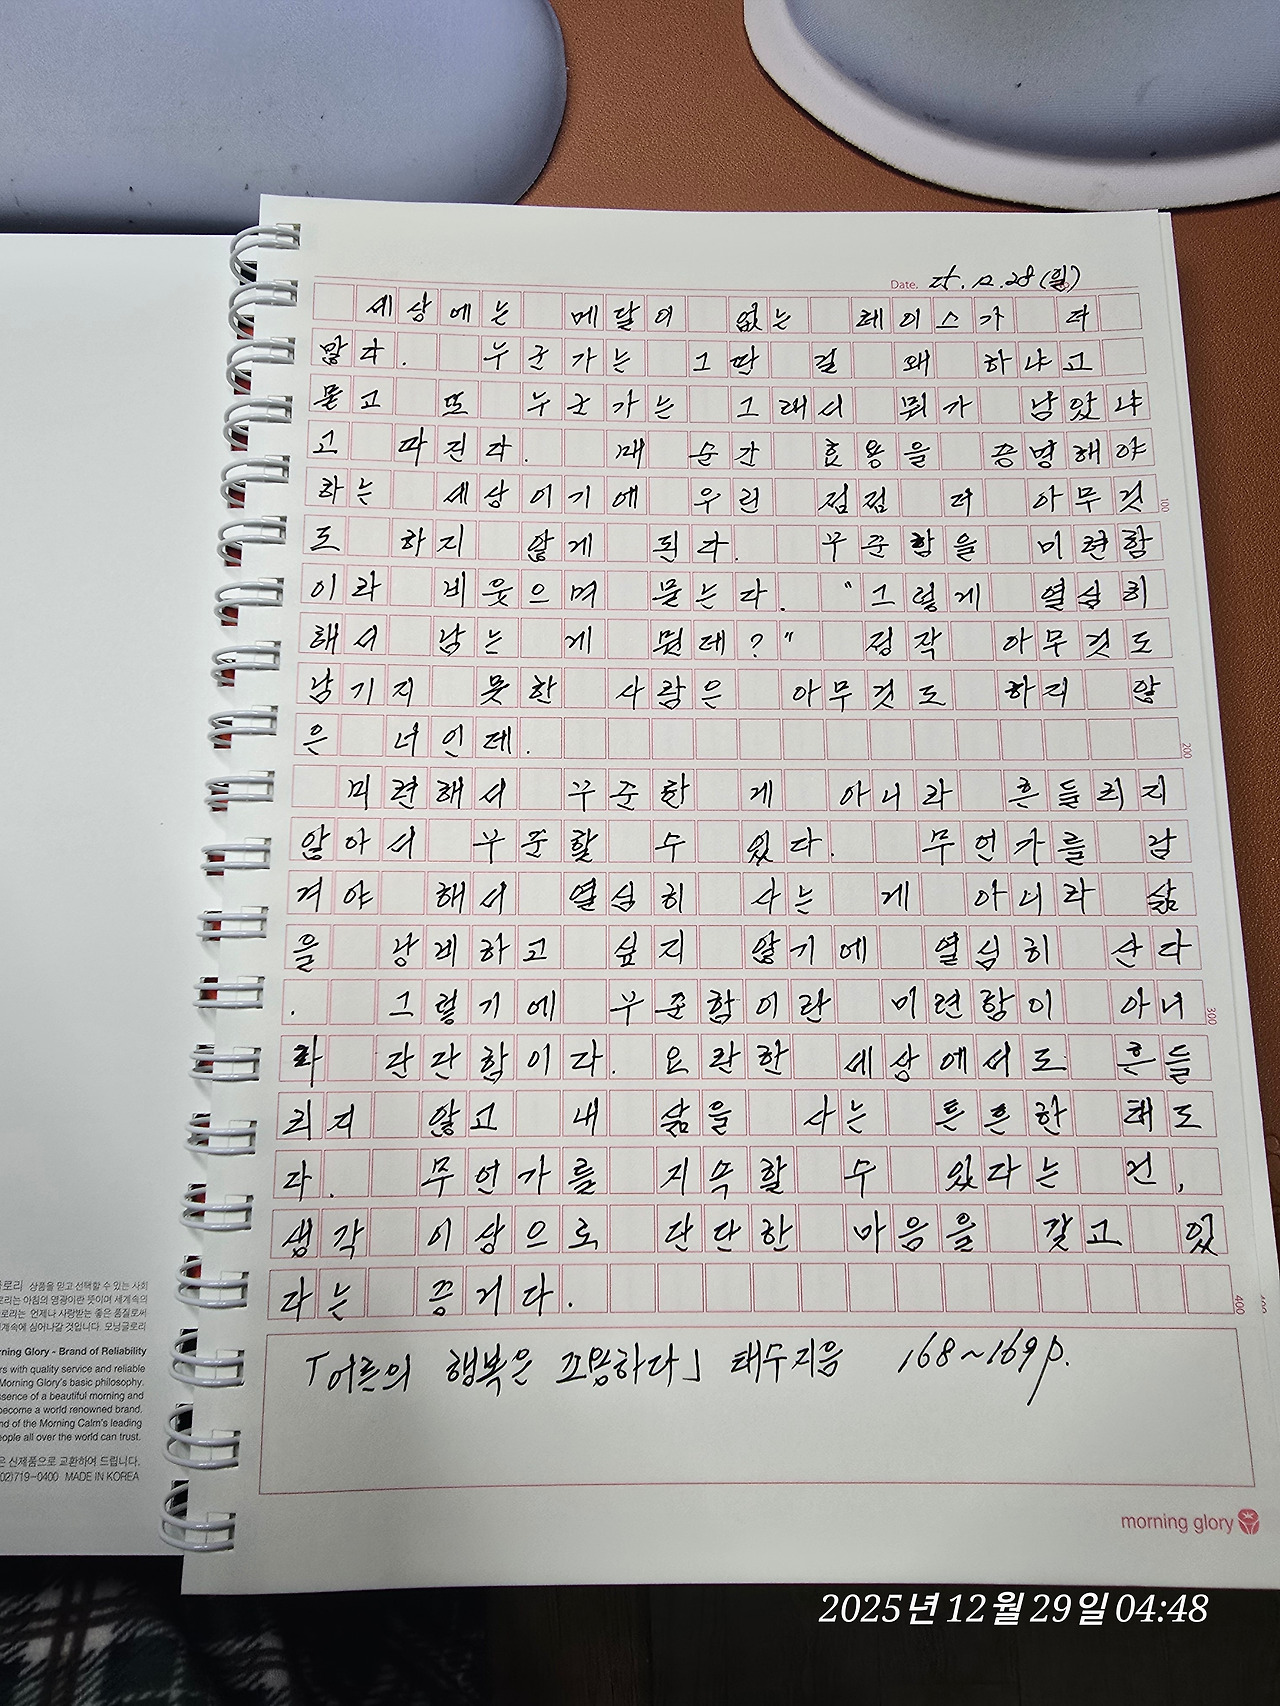 Date. 25. 12. 28 (월)
세상에는 메달이 없는 레이스가 더
많다. 누군가는 그딴 걸 왜 하냐고
묻고 또 누군가는 그래서 뭐가 남았냐
고 따진다. 매 순간 효용을 증명해야
하는 세상이기에 우린 점점 더 아무것
도 하지 않게 된다. 꾸준함을 미련함
이라 비웃으며 묻는다. "그렇게 열심히
해서 남는 게 뭔데?" 정작 아무것도
남기지 못한 사람은 아무것도 하지 않
은 너인데.
미련해서 꾸준한 게 아니라 흔들리지
않아서 꾸준할 수 있다. 무언가를 남
겨야 해서 열심히 사는 게 아니라 삶
을 낭비하고 싶지 않기에 열심히 산다
. 그렇기에 꾸준함이란 미련함이 아니
라 단단함이다. 요란한 세상에서도 흔들
리지 않고 내 삶을 사는 튼튼한 태도
다. 무언가를 지속할 수 있다는 건,
생각 이상으로 단단한 마음을 갖고 있
다는 증거다.
「어른의 행복은 조용하다」 태수지음 168~169p.
100
200
300
400
글로리 상품을 믿고 선택할 수 있는 사회
로리는 아침의 영광이란 뜻이며 세계속의
로리는 언제나 사랑받는 좋은 품질로써
계속에 심어나갈 것입니다. 모닝글로리
rning Glory - Brand of Reliability
rs with quality service and reliable
Morning Glory's basic philosophy.
ssence of a beautiful morning and
become a world renowned brand.
nd of the Morning Calm's leading
eople all over the world can trust.
은 신제품으로 교환하여 드립니다.
02)719-0400 MADE IN KOREA
morning glory
2025년 12월 29일 04:48